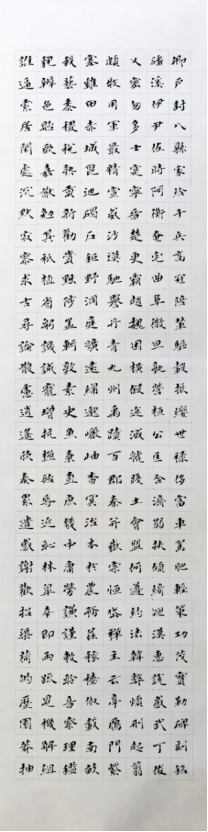 卿户封八縣家給千兵高冠陪輦驅轂振纓世祿侈富車駕肥輕策功茂實勒碑刻銘
磻溪伊尹佐時阿衡奄宅曲阜微旦孰營桓公匡合濟弱扶傾綺迴漢惠說感武丁俊
乂密勿多士寔寧晉楚更霸趙魏困橫假途滅虢踐土會盟何遵約法韓弊煩刑起翦
頗牧用軍最精宣威沙漠馳譽丹青九州禹蹟百郡秦并嶽宗恒岱禪主云亭鴈門紫
塞雞田赤城昆池碣石鉅野洞庭曠遠綿邈巖岫杳冥治本於農務茲稼穡俶載南畝
我藝黍稷稅熟貢新勸賞黜陟孟軻敦素史魚秉直庶幾中庸勞謙謹敕聆音察理鑑
貌辨色貽厥嘉猷勉其祗植省躬譏誡寵增抗極殆辱近恥林皋幸即兩疏見機解組
誰逼索居閑處沉默寂寥求古尋論散慮逍遙欣奏累遣慼謝歡招渠荷的歷園莽抽